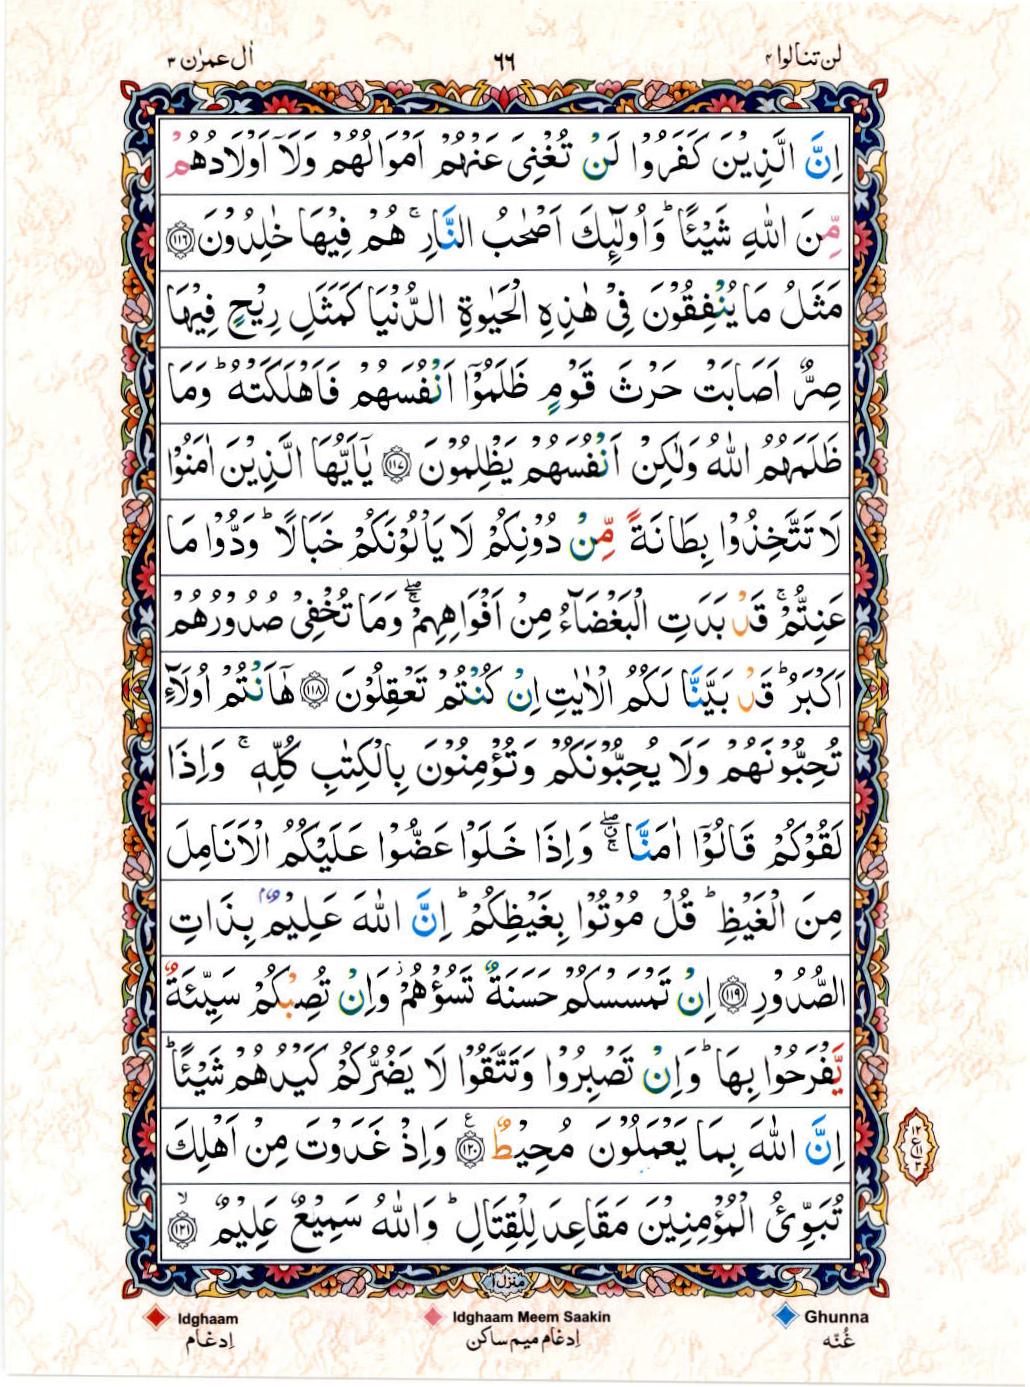 لن تنالوا ۴ ۶۶ اٰل عمرٰن ۳
اِنَّ الَّذِيْنَ كَفَرُوْا لَنْ تُغْنِيَ عَنْهُمْ اَمْوَالُهُمْ وَلَاۤ اَوْلَادُهُمْ
مِّنَ اللّٰهِ شَيْـًٔا ؕ وَاُولٰٓئِكَ اَصْحٰبُ النَّارِ ۚ هُمْ فِيْهَا خٰلِدُوْنَ ﴿۱۱۶﴾
مَثَلُ مَا يُنْفِقُوْنَ فِيْ هٰذِهِ الْحَيٰوةِ الدُّنْيَا كَمَثَلِ رِيْحٍ فِيْهَا
صِرٌّ اَصَابَتْ حَرْثَ قَوْمٍ ظَلَمُوْۤا اَنْفُسَهُمْ فَاَهْلَكَتْهُ ؕ وَمَا
ظَلَمَهُمُ اللّٰهُ وَلٰكِنْ اَنْفُسَهُمْ يَظْلِمُوْنَ ﴿۱۱۷﴾ يٰۤاَيُّهَا الَّذِيْنَ اٰمَنُوْا
لَا تَتَّخِذُوْا بِطَانَةً مِّنْ دُوْنِكُمْ لَا يَاْلُوْنَكُمْ خَبَالًا ؕ وَدُّوْا مَا
عَنِتُّمْ ۚ قَدْ بَدَتِ الْبَغْضَآءُ مِنْ اَفْوَاهِهِمْ ۖۚ وَمَا تُخْفِيْ صُدُوْرُهُمْ
اَكْبَرُ ؕ قَدْ بَيَّنَّا لَكُمُ الْاٰيٰتِ اِنْ كُنْتُمْ تَعْقِلُوْنَ ﴿۱۱۸﴾ هٰۤاَنْتُمْ اُولَآءِ
تُحِبُّوْنَهُمْ وَلَا يُحِبُّوْنَكُمْ وَتُؤْمِنُوْنَ بِالْكِتٰبِ كُلِّهٖ ۚ وَاِذَا
لَقُوْكُمْ قَالُوْۤا اٰمَنَّا ۖۚ وَاِذَا خَلَوْا عَضُّوْا عَلَيْكُمُ الْاَنَامِلَ
مِنَ الْغَيْظِ ؕ قُلْ مُوْتُوْا بِغَيْظِكُمْ ؕ اِنَّ اللّٰهَ عَلِيْمٌۢ بِذَاتِ
الصُّدُوْرِ ﴿۱۱۹﴾ اِنْ تَمْسَسْكُمْ حَسَنَةٌ تَسُؤْهُمْ ؗ وَاِنْ تُصِبْكُمْ سَيِّئَةٌ
يَّفْرَحُوْا بِهَا ؕ وَاِنْ تَصْبِرُوْا وَتَتَّقُوْا لَا يَضُرُّكُمْ كَيْدُهُمْ شَيْـًٔا ؕ
اِنَّ اللّٰهَ بِمَا يَعْمَلُوْنَ مُحِيْطٌ ﴿۱۲۰﴾ ع وَاِذْ غَدَوْتَ مِنْ اَهْلِكَ
تُبَوِّئُ الْمُؤْمِنِيْنَ مَقَاعِدَ لِلْقِتَالِ ؕ وَاللّٰهُ سَمِيْعٌ عَلِيْمٌ ﴿۱۲۱﴾ ۙ
۱۲
ع
۱۱
۳
منزل ۱
Idghaam Idghaam Meem Saakin Ghunna
اِدغام اِدغام میم ساکن غُنّه